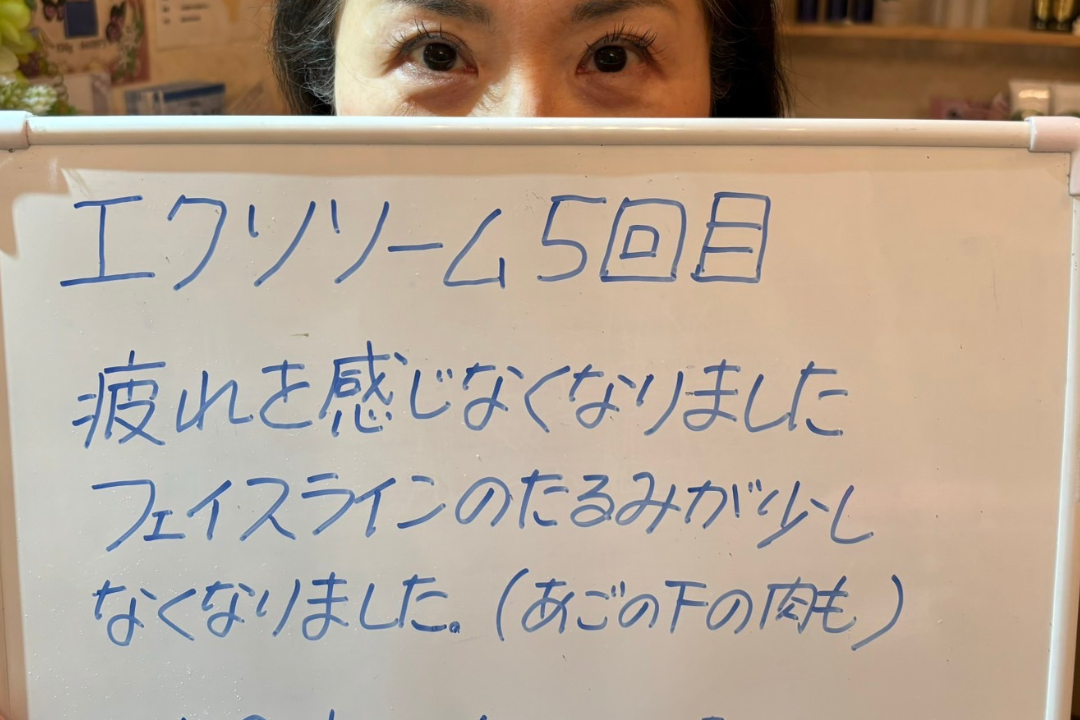 エクソソーム5回目
疲れを感じなくなりました
フェイスラインのたるみが少し
なくなりました。(あごの下の肉も)